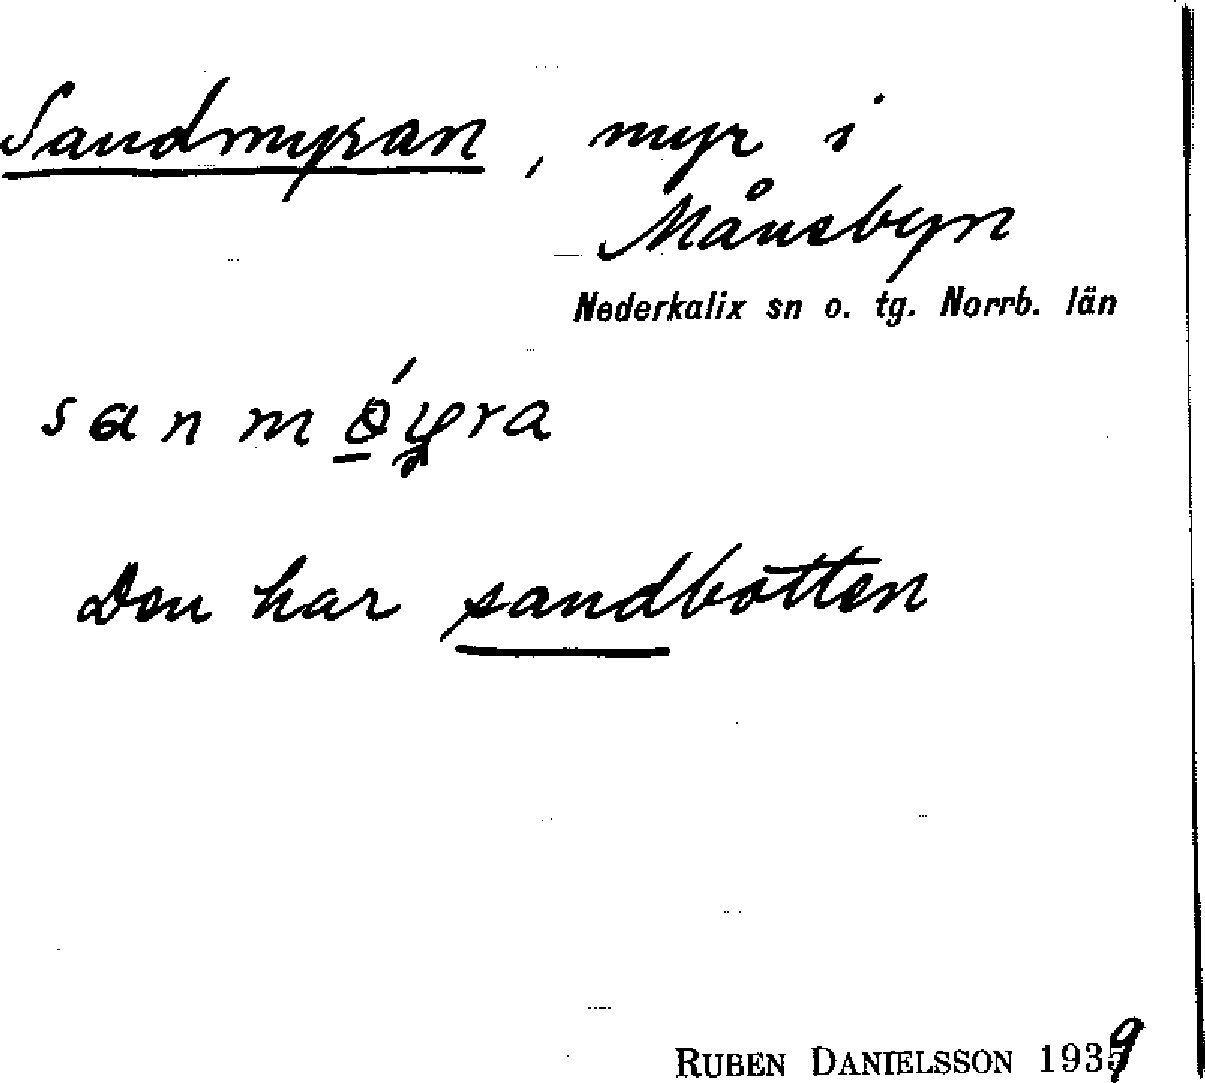 Sandmyran, myr i
Månsbyn
Nederkalix sn o. tg. Norrb. län
sanmǿyra
Den har sandbotten
RUBEN DANIELSSON 1939